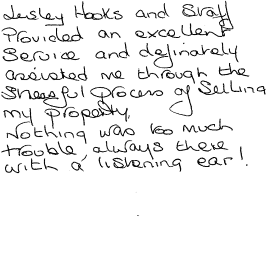 Lesley Hooks and Staff
Provided an excellent
Service and definately
assisted me through the
Stressful Process of Selling
my property,
Nothing was too much
trouble, always there
with a listening ear!